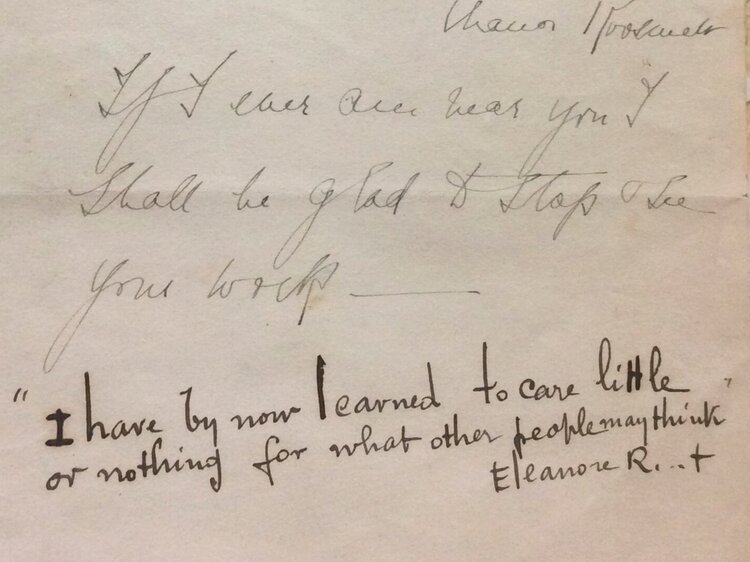 Eleanor Roosevelt
If I ever am near you I
shall be glad to stop & see
your work —
" I have by now learned to care little "
or nothing for what other people may think
Eleanore R...t